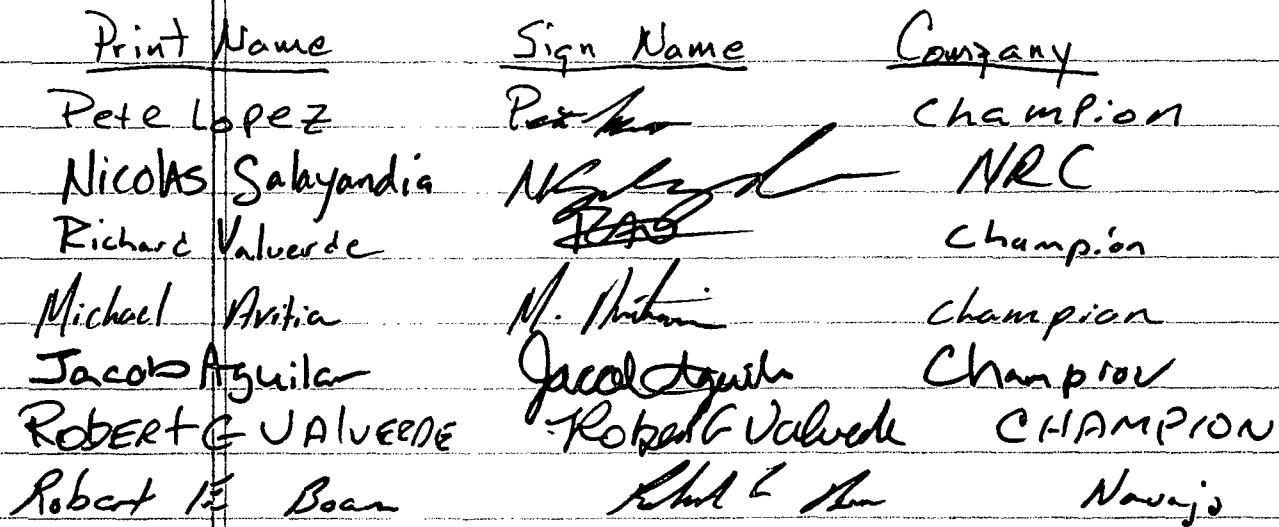 Print Name Sign Name Company
Pete Lopez Champion
Nicolas Salayandia NRC
Richard Valverde Champion
Michael Avitia M. Champion
Jacob Aguilar Jacob Aguilar Champion
ROBERT G VALVERDE Robert G Valverde CHAMPION
Robert E Boan Navajo